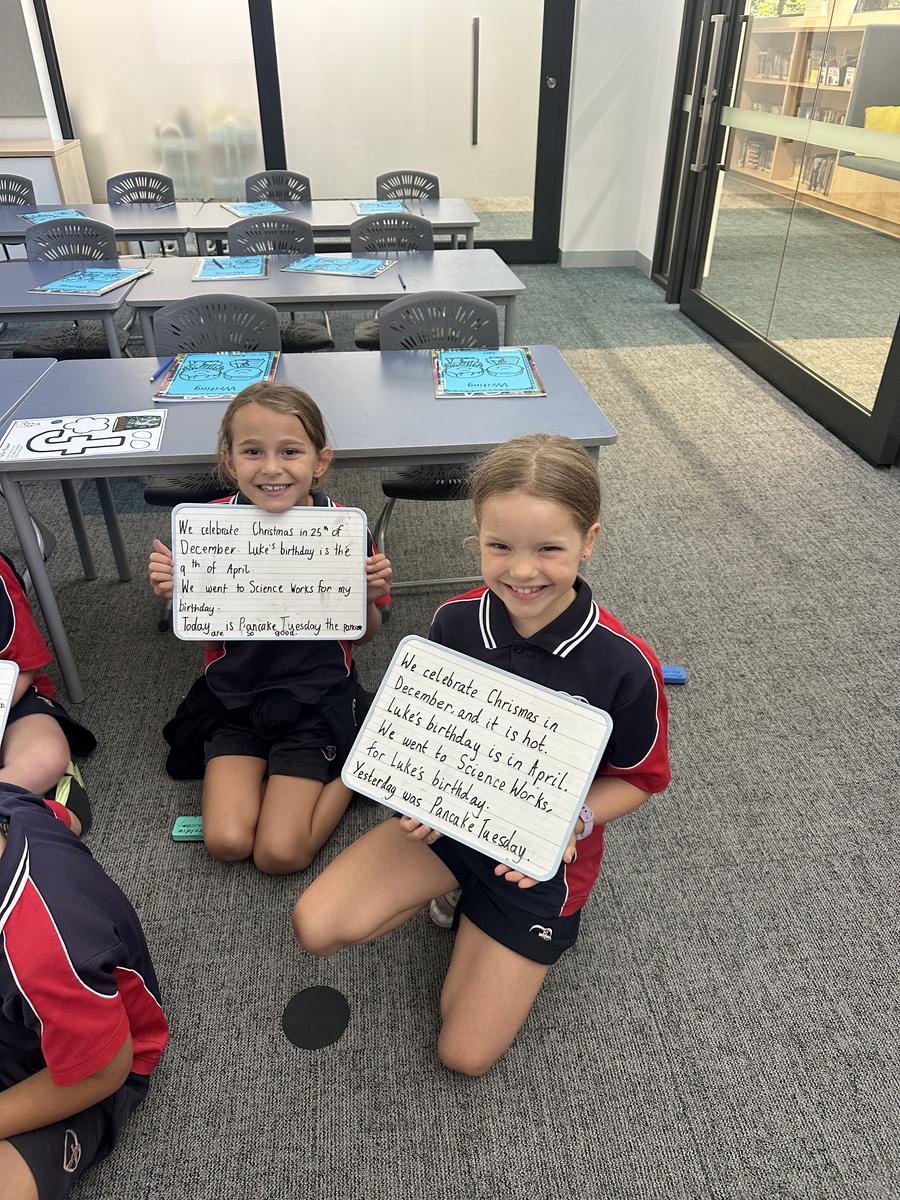 Writing
Writing
We celebrate Christmas in 25th of
December. Luke's birthday is the
9th of April.
We went to Science Works for my
birthday.
Today is Pancake Tuesday the pancake
are so good.
We celebrate Chrismas in
December, and it is hot.
Luke's birthday is in April.
We went to Science Works,
for Luke's birthday.
Yesterday was Pancake Tuesday.